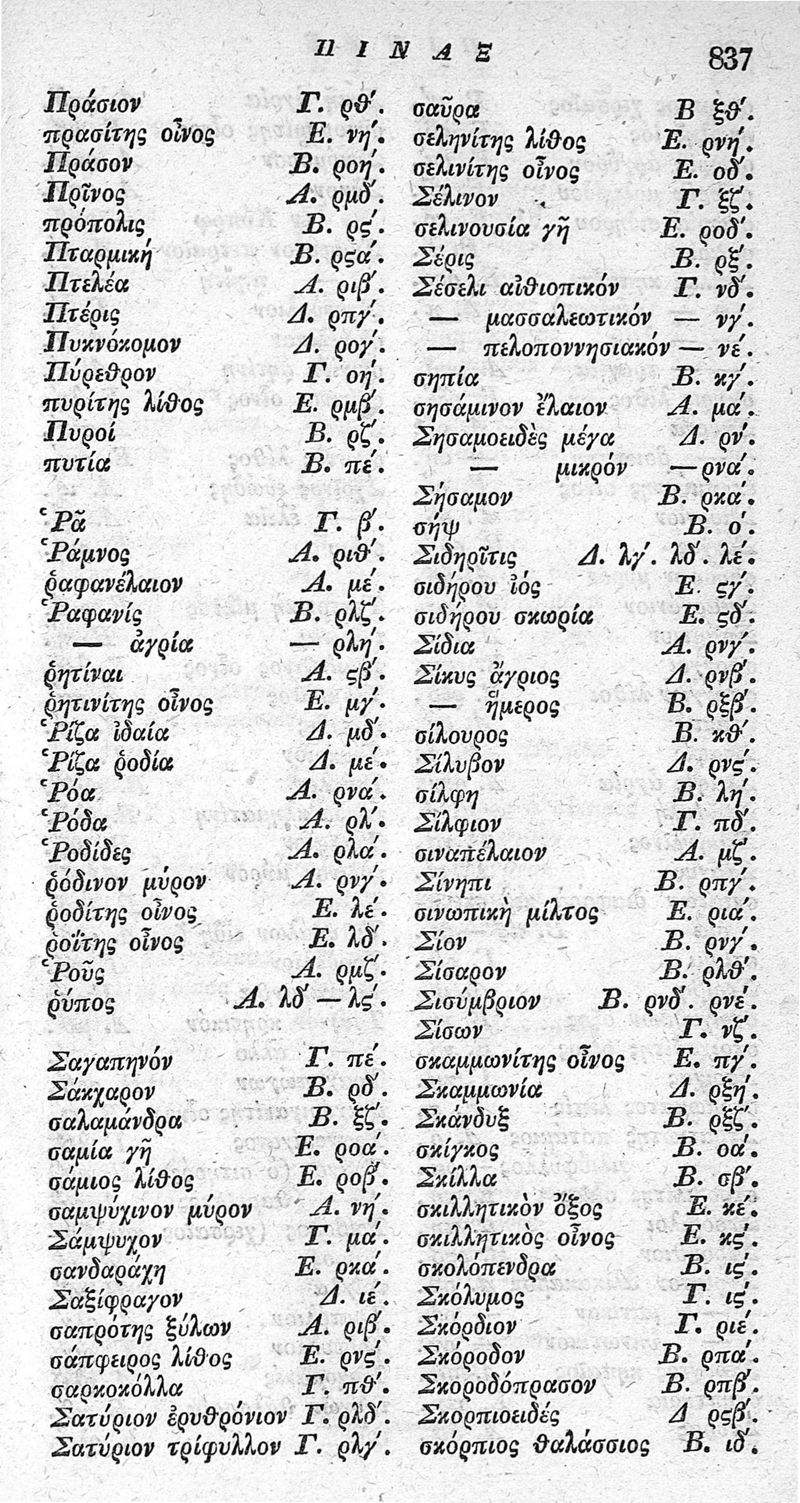 ΠΙΝΑΞ 837
Πράσιον Γ. ρθ΄.
πρασίτης οἶνος Ε. νη΄.
Πράσον Β. ροη΄.
Πρῖνος Α. ρμδ΄.
πρόπολις Β. ρς΄.
Πταρμική Β. ρςα΄.
Πτελέα Α. ριβ΄.
Πτέρις Δ. ρπγ΄.
Πυκνόκομον Δ. ρογ΄.
Πύρεθρον Γ. οη΄.
πυρίτης λίθος Ε. ρμβ΄.
Πυροί Β. ρζ΄.
πυτία Β. πέ.
Ῥᾶ Γ. β΄.
Ῥάμνος Α. ριθ΄.
ῥαφανέλαιον Α. μέ.
Ῥαφανίς Β. ρλζ΄.
— ἀγρία — ρλη΄.
ῥητίναι Α. ςβ΄.
ῥητινίτης οἶνος Ε. μγ΄.
Ῥίζα ἰδαία Δ. μδ΄.
Ῥίζα ῥοδία Δ. μέ.
Ῥόα Α. ρνα΄.
Ῥόδα Α. ρλ΄.
Ῥοδίδες Α. ρλα΄.
ῥόδινον μύρον Α. ρνγ΄.
ῥοδίτης οἶνος Ε. λέ.
ῥοΐτης οἶνος Ε. λδ΄.
Ῥοῦς Α. ρμζ΄.
ῥύπος Α. λδ΄ — λς΄.
Σαγαπηνόν Γ. πέ.
Σάκχαρον Β. ρδ΄.
σαλαμάνδρα Β. ξζ΄.
σαμία γῆ Ε. ροα΄.
σάμιος λίθος Ε. ροβ΄.
σαμψύχινον μύρον Α. νη΄.
Σάμψυχον Γ. μα΄.
σανδαράχη Ε. ρκα΄.
Σαξίφραγον Δ. ιέ.
σαπρότης ξύλων Α. ριβ΄.
σάπφειρος λίθος Ε. ρνς΄.
σαρκοκόλλα Γ. πθ΄.
Σατύριον ἐρυθρόνιον Γ. ρλδ΄.
Σατύριον τρίφυλλον Γ. ρλγ΄.
σαῦρα Β ξθ΄.
σεληνίτης λίθος Ε. ρνη΄.
σελινίτης οἶνος Ε. οδ΄.
Σέλινον Γ. ξζ΄.
σελινουσία γῆ Ε. ροδ΄.
Σέρις Β. ρξ΄.
Σέσελι αἰθιοπικόν Γ. νδ΄.
— μασσαλεωτικόν — νγ΄.
— πελοποννησιακόν — νέ.
σηπία Β. κγ΄.
σησάμινον ἔλαιον Α. μα΄.
Σησαμοειδὲς μέγα Δ. ρν΄.
— μικρόν — ρνα΄.
Σήσαμον Β. ρκα΄.
σήψ Β. ο΄.
Σιδηρῖτις Δ. λγ΄. λδ΄. λέ.
σιδήρου ἰός Ε. ςγ΄.
σιδήρου σκωρία Ε. ςδ΄.
Σίδια Α. ρνγ΄.
Σίκυς ἄγριος Δ. ρνβ΄.
— ἥμερος Β. ρξβ΄.
σίλουρος Β. κθ΄.
Σίλυβον Δ. ρνς΄.
σίλφη Β. λη΄.
Σίλφιον Γ. πδ΄.
σιναπέλαιον Α. μζ΄.
Σίνηπι Β. ρπγ΄.
σινωπικὴ μίλτος Ε. ρια΄.
Σίον Β. ρνγ΄.
Σίσαρον Β. ρλθ΄.
Σισύμβριον Β. ρνδ΄. ρνέ.
Σίσων Γ. νζ΄.
σκαμμωνίτης οἶνος Ε. πγ΄.
Σκαμμωνία Δ. ρξη΄.
Σκάνδυξ Β. ρξζ΄.
σκίγκος Β. οα΄.
Σκίλλα Β. σβ΄.
σκιλλητικὸν ὄξος Ε. κέ.
σκιλλητικὸς οἶνος Ε. κς΄.
σκολόπενδρα Β. ις΄.
Σκόλυμος Γ. ις΄.
Σκόρδιον Γ. ριέ.
Σκόροδον Β. ρπα΄.
Σκοροδόπρασον Β. ρπβ΄.
Σκορπιοειδές Δ ρςβ΄.
σκόρπιος θαλάσσιος Β. ιδ΄.